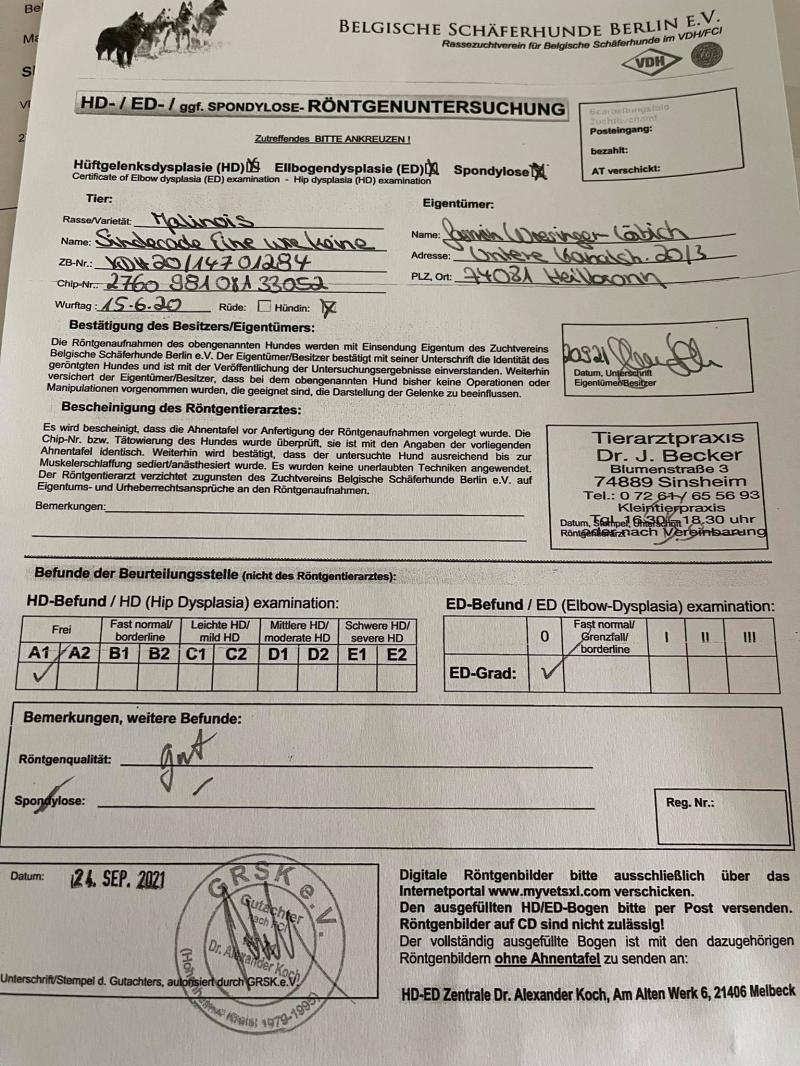 BELGISCHE SCHÄFERHUNDE BERLIN E.V.
Rassezuchtverein für Belgische Schäferhunde im VDH/FCI
VDH
HD- / ED- / ggf. SPONDYLOSE- RÖNTGENUNTERSUCHUNG
Bearbeitungsfeld
Zuchtbuchamt
Posteingang:
bezahlt:
AT verschickt:
Zutreffendes BITTE ANKREUZEN !
Hüftgelenksdysplasie (HD) Ellbogendysplasie (ED) Spondylose
Certificate of Elbow dysplasia (ED) examination - Hip dysplasia (HD) examination
Tier:
Rasse/Varietät: Malinois
Name: Sindecade Eine wie keine
ZB-Nr.: VDH 20/14701284
Chip-Nr.: 2760 981 081 33052
Wurftag : 15.6.20 Rüde: Hündin:
Eigentümer:
Name:
Adresse: Untere Kanalstr. 20/3
PLZ, Ort: 74081 Heilbronn
Bestätigung des Besitzers/Eigentümers:
Die Röntgenaufnahmen des obengenannten Hundes werden mit Einsendung Eigentum des Zuchtvereins
Belgische Schäferhunde Berlin e.V. Der Eigentümer/Besitzer bestätigt mit seiner Unterschrift die Identität des
geröntgten Hundes und ist mit der Veröffentlichung der Untersuchungsergebnisse einverstanden. Weiterhin
versichert der Eigentümer/Besitzer, dass bei dem obengenannten Hund bisher keine Operationen oder
Manipulationen vorgenommen wurden, die geeignet sind, die Darstellung der Gelenke zu beeinflussen.
Datum, Unterschrift
Eigentümer/Besitzer
Bescheinigung des Röntgentierarztes:
Es wird bescheinigt, dass die Ahnentafel vor Anfertigung der Röntgenaufnahmen vorgelegt wurde. Die
Chip-Nr. bzw. Tätowierung des Hundes wurde überprüft, sie ist mit den Angaben der vorliegenden
Ahnentafel identisch. Weiterhin wird bestätigt, dass der untersuchte Hund ausreichend bis zur
Muskelerschlaffung sediert/anästhesiert wurde. Es wurden keine unerlaubten Techniken angewendet.
Der Röntgentierarzt verzichtet zugunsten des Zuchtvereins Belgische Schäferhunde Berlin e.V. auf
Eigentums- und Urheberrechtsansprüche an den Röntgenaufnahmen.
Bemerkungen:
Tierarztpraxis
Dr. J. Becker
Blumenstraße 3
74889 Sinsheim
Tel.: 0 72 61 / 65 56 93
Kleintierpraxis
Tgl. 16.30 - 18.30 uhr
oder nach Vereinbarung
Datum, Stempel, Unterschrift
Röntgentierarzt
Befunde der Beurteilungsstelle (nicht des Röntgentierarztes):
HD-Befund / HD (Hip Dysplasia) examination:
Frei Fast normal/ borderline Leichte HD/ mild HD Mittlere HD/ moderate HD Schwere HD/ severe HD
A1 A2 B1 B2 C1 C2 D1 D2 E1 E2
✓
ED-Befund / ED (Elbow-Dysplasia) examination:
0 Fast normal/ Grenzfall/ borderline I II III
ED-Grad: ✓
Bemerkungen, weitere Befunde:
Röntgenqualität: gut
Spondylose:
Reg. Nr.:
Datum: 24. SEP. 2021
GRSK e.V.
Gutachter
nach FCI
Dr. Alexander Koch
Unterschrift/Stempel d. Gutachters, autorisiert durch GRSK e.V.
Digitale Röntgenbilder bitte ausschließlich über das
Internetportal www.myvetsxl.com verschicken.
Den ausgefüllten HD/ED-Bogen bitte per Post versenden.
Röntgenbilder auf CD sind nicht zulässig!
Der vollständig ausgefüllte Bogen ist mit den dazugehörigen
Röntgenbildern ohne Ahnentafel zu senden an:
HD-ED Zentrale Dr. Alexander Koch, Am Alten Werk 6, 21406 Melbeck